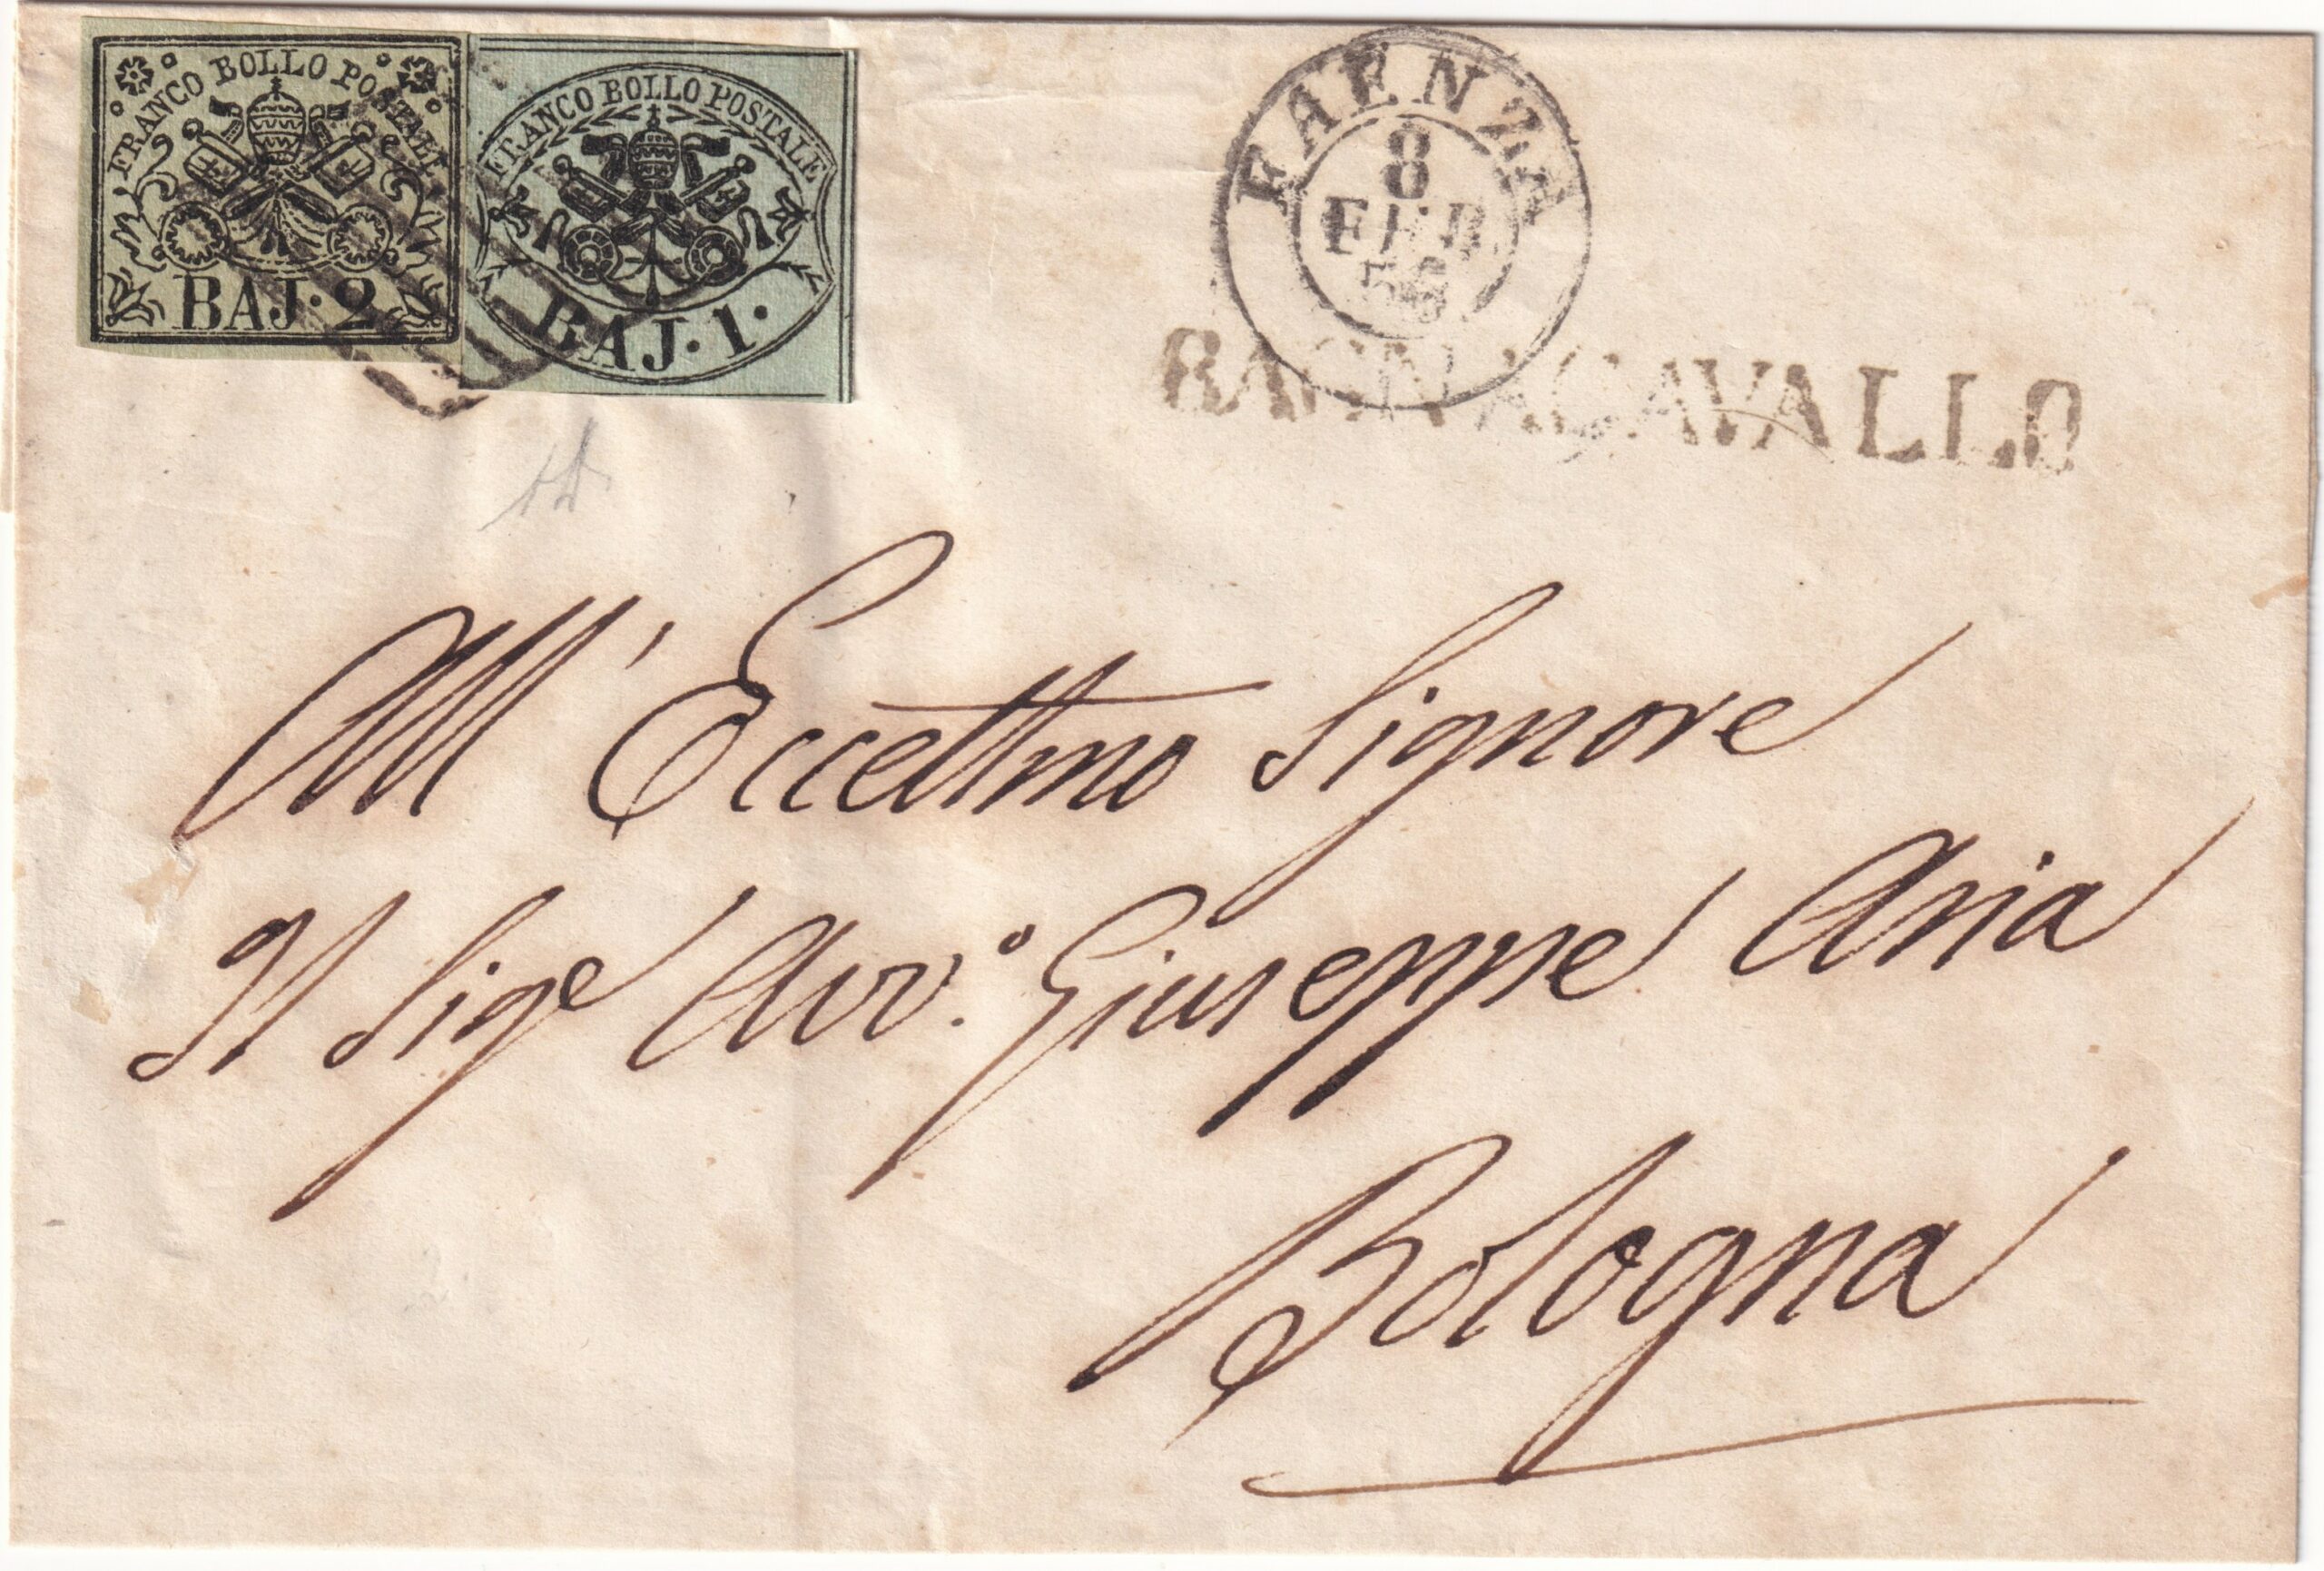 FRANCO BOLLO POSTALE
BAJ. 2
FRANCO BOLLO POSTALE
BAJ. 1.
FAENZA
8
FEB
56
BAGNACAVALLO
All' Eccellmo Signore
Il Sige Avv.o Giuseppe Aria
Bologna